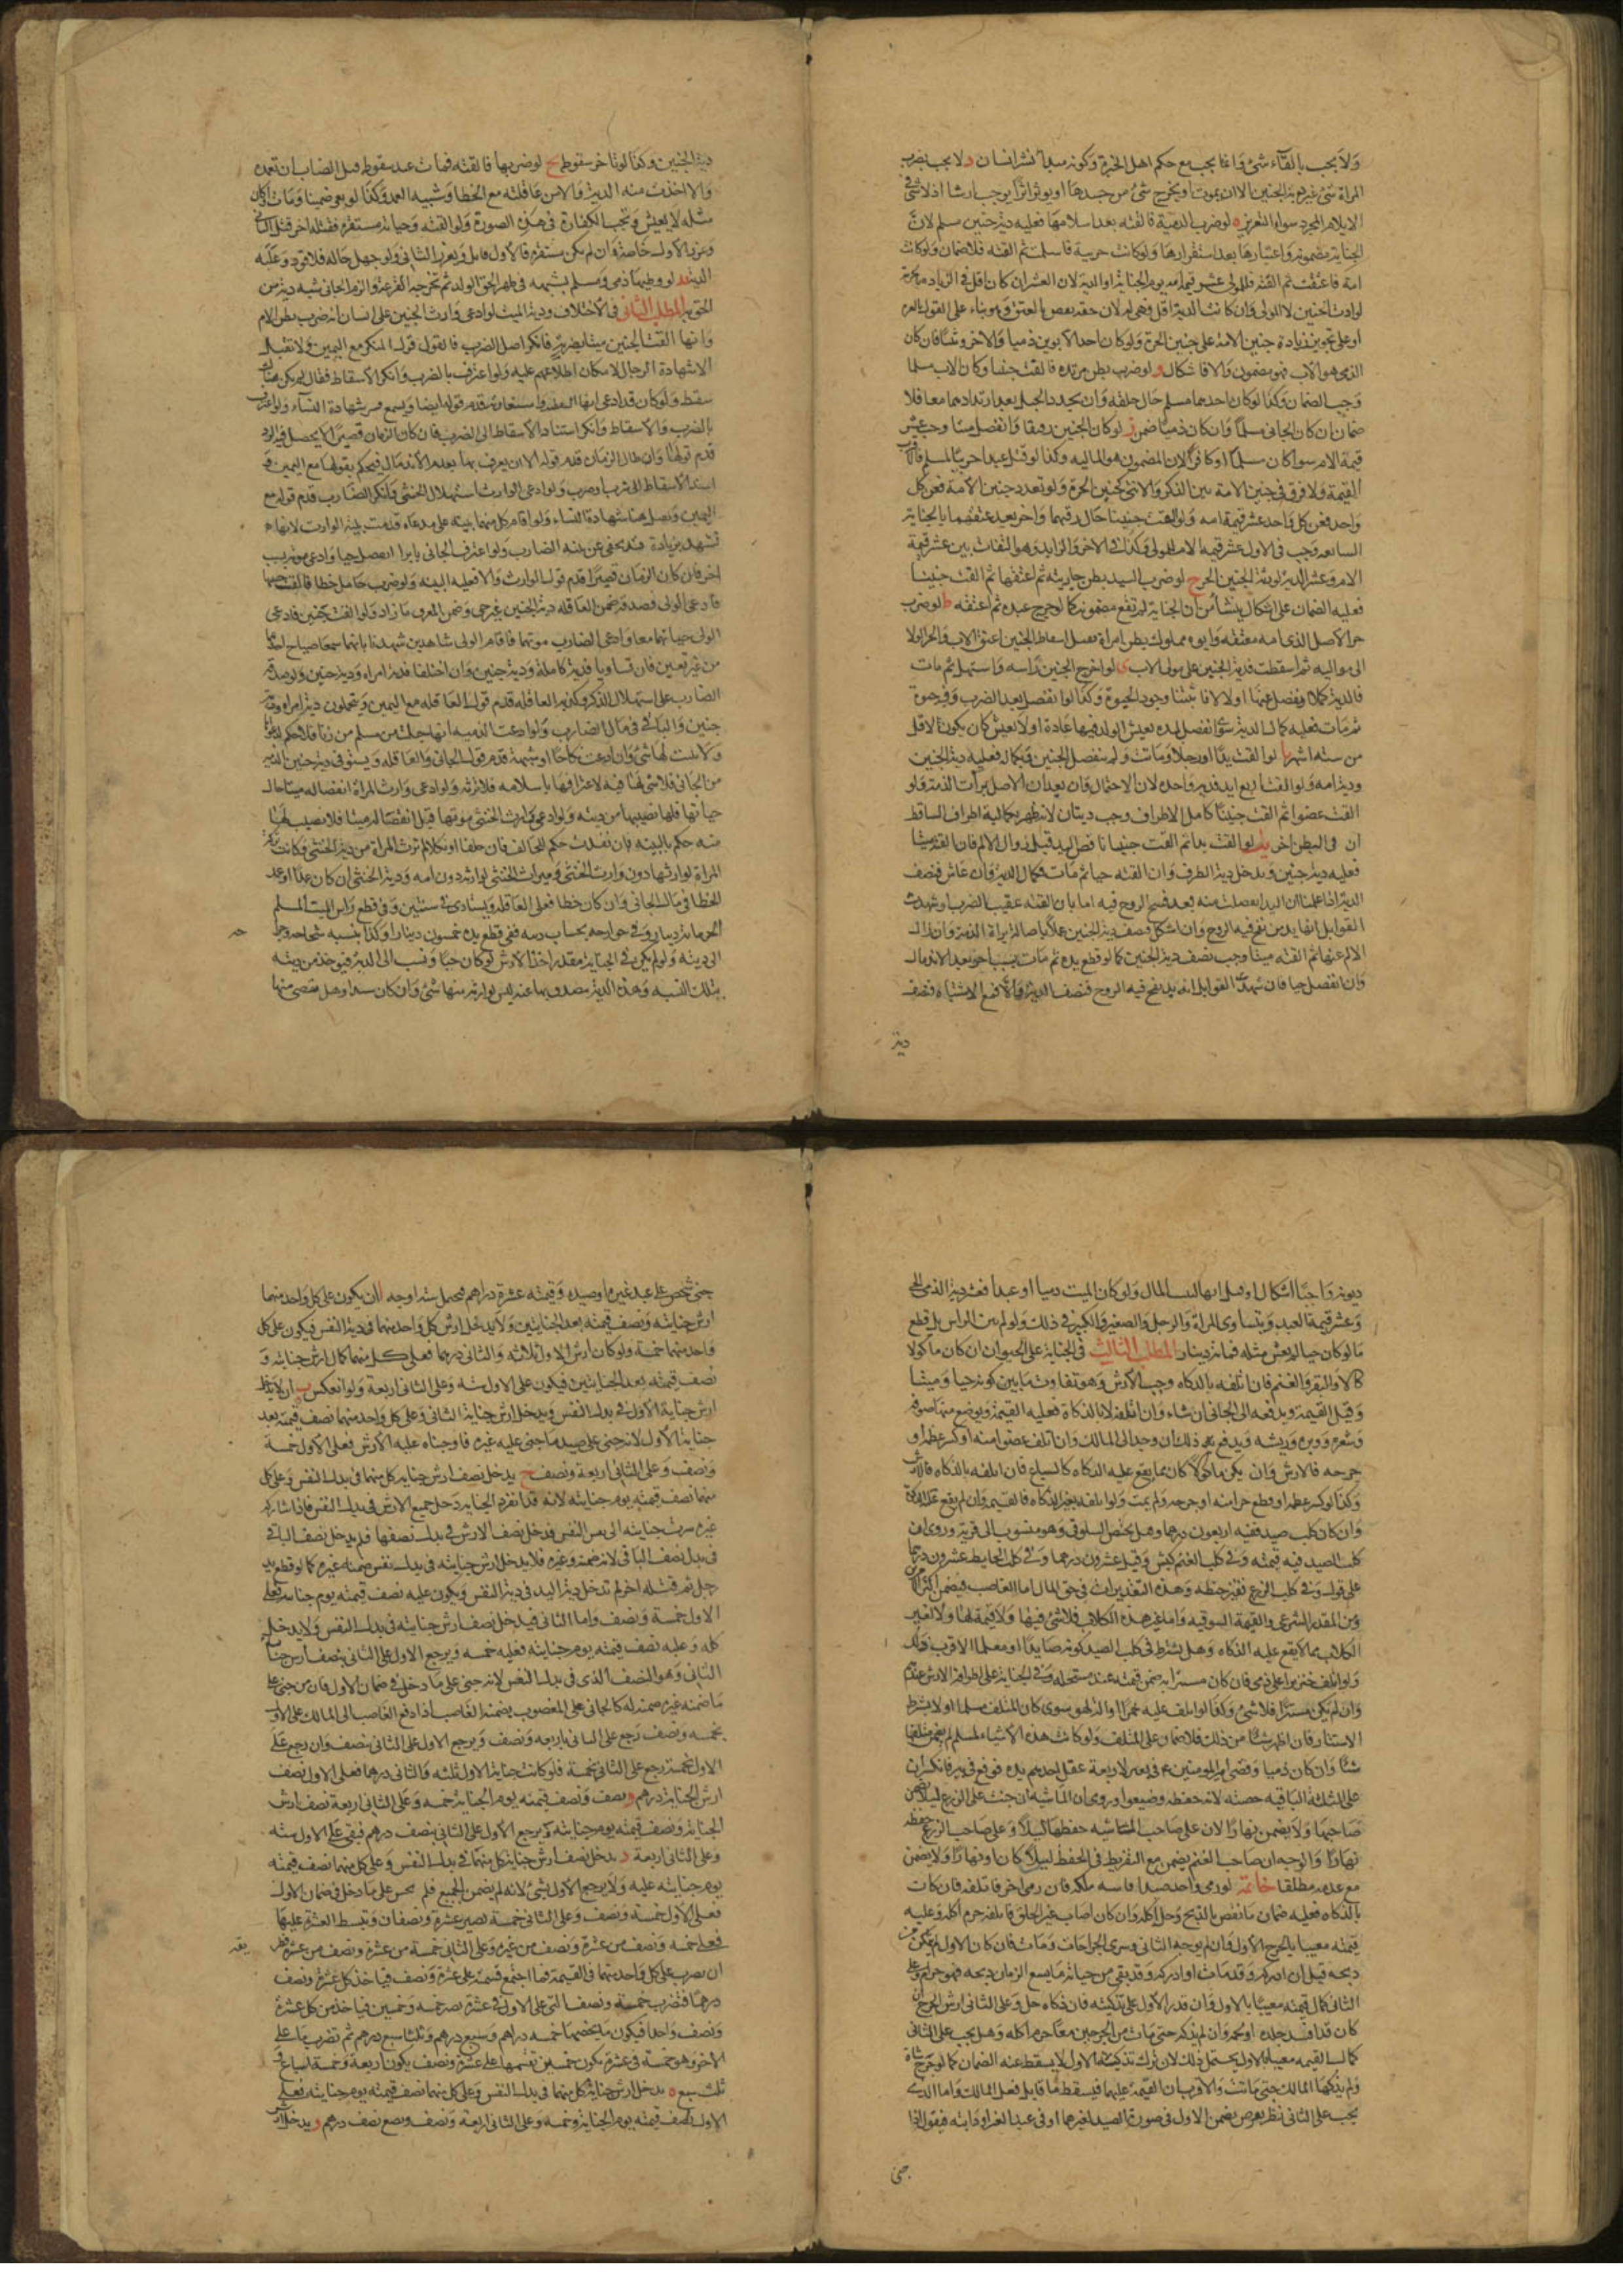 ولا يجب بالقاء شئ وانما يجب مع حكم اهل الخبرة وكونه مبدأ نشو انسان د لا يجب بضرب
المراة شئ غير دية الجنين الا ان يموت او يخرج شئ من جسدها او يوثر اثرا يوجب ارشا اذ لا شئ في
الايلام المجرد سوى التعزير ه لو ضرب الذمية فالقته بعد اسلامها فعليه دية جنين مسلم لان
الجناية مضمونة واعتبارها بعد استقرارها ولو كانت حربية فاسلمت ثم القته فلا ضمان ولو كانت
امة فاعتقت ثم القته فللمولى عشر قيمة امه يوم الجناية او الدية لان العشر ان كان اقل فالزيادة بالحرية
لوارث الجنين لا للمولى وان كانت الدية اقل فهي له لان حقه نقص بالعتق وهو بناء على القول بالغرة
او على تجويز زيادة جنين الامة على جنين الحرة ولو كان احد الابوين ذميا والاخر وثنيا فان كان
الذمي هو الاب فهو مضمون والا فاشكال و لو ضرب بطن مرتدة فالقت جنينا وكان الاب مسلما
وجب الضمان وكذا لو كان احدهما مسلم حال خلقه وان تجدد الحبل بعد ارتدادهما معا فلا
ضمان ان كان الجاني مسلما وان كان ذميا ضمن ز لو كان الجنين رقيقا وانفصل ميتا وجب عشر
قيمة الام سوا كان مسلما او كافرا لان المضمون هو المالية وكذا لو قتل عبدا حربيا لمسلم فالاقرب
القيمة ولا فرق في جنين الامة بين الذكر والانثى كجنين الحرة ولو تعدد جنين الامة فعن كل
واحد عشر قيمة امه ولو القت جنينا حال رقها واخر بعد عتقها بالجناية
السابقة وجب في الاول عشر قيمة الام للمولى وكذلك في الاخر والزايد وهو التفاوت بين عشر قيمة
الام وعشر الدية لورثة الجنين الحر ح لو ضرب السيد بطن جاريته ثم اعتقها ثم القت جنينا
فعليه الضمان على اشكال ينشأ من ان الجناية لم تقع مضمونة كما لو جرح عبده ثم اعتقه ط لو ضرب
حر الاصل الذي امه معتقة وابوه مملوك بطن امراة قبل اسقاط الجنين اعتق الاب وانجر الولا
الى مواليه ثم اسقطت فدية الجنين على مولى الاب ى لو اخرج الجنين راسه واستهل ثم مات
فالدية كملا وينفصل عنها اولا لانا تيقنا وجود الحيوة وكذا لو انفصل بعد الضرب وفيه حيوة
ثم مات فعليه كمال الدية سوا انفصل لمدة يعيش الولد فيها عادة او لا يعيش كان يكون لاقل
من ستة اشهر يا لو القت يدا او رجلا وماتت ولم ينفصل الجنين بكماله فعليه دية الجنين
ودية امه ولو القت اربع ايد فدية واحدة لان الاحتمال وان بعد فان الاصل براءة الذمة ولو
القت عضوا ثم القت جنينا كامل الاطراف وجب ديتان لانه ظهر بكمالية اطراف الساقط
ان في البطن اخر يب لو القت يدا ثم القت جنينا ناقص اليد قبل زوال الالم فان القته ميتا
فعليه دية جنين ويدخل دية الطرف وان القته حيا ثم مات فكمال الدية وان عاش فنصف
الدية اذا علمنا ان اليد انفصلت منه بعد نفخ الروح فيه اما بان القته عقيب الضرب او شهدت
القوابل انها يد من نفخ فيه الروح وان اشكل فنصف دية الجنين عملا باصالة براءة الذمة وان زال
الالم عنها ثم القته ميتا وجب نصف دية الجنين كما لو قطع يده ثم مات بسبب اخر بعد الاندمال
وان انفصل حيا فان شهدت القوابل انه يد من نفخ فيه الروح فنصف الدية والا فمع الاشتباه نصف
دية
دية الجنين وكذا لو تاخر سقوطه يج لو ضربها فالقته فمات عند سقوطه قتل الضارب ان تعمد
والا اخذت منه الدية او من عاقلته مع الخطا وشبيه العمد وكذا لو بقي ضمنا ومات او كان
مثله لا يعيش وتجب الكفارة في هذه الصورة ولو القته وحياته مستقرة فقتله اخر قتل الثاني
وعزر الاول خاصة وان لم يكن مستقرة فالاول قاتل ويعزر الثاني ولو جهل حاله فلا قود وعليه
الدية يد لو وطيها ذمي ومسلم بشبهة في طهر الحق الولد ثم تخرجه القرعة والزم الجاني بنسبة دية من
الحق به المطلب الثاني في الاختلاف ودية الميت لو ادعى وارث الجنين على انسان انه ضرب بطن الام
وانها القت الجنين ميتا بضربه فانكر اصل الضرب فالقول قول المنكر مع اليمين ولا تقبل
الا شهادة الرجال لامكان اطلاعهم عليه ولو اعترف بالضرب وانكر الاسقاط فقال لم يكن هناك
سقط ولو كان قد ادعى انها التقطته او استعارته قدم قوله ايضا ويسمع هنا شهادة النساء ولو اعترف
بالضرب والاسقاط وانكر استناد الاسقاط الى الضرب فان كان الزمان قصيرا لا يحصل فيه البرء
قدم قولها وان طال الزمان قدم قوله الا ان يعترف بها بعدم الاندمال فيحكم بقولها مع اليمين ولو
اسند الاسقاط الى شرب او ضرب ولو ادعى الوارث استهلال الجنين وانكر الضارب قدم قوله مع
اليمين وتقبل هنا شهادة النساء ولو اقام كل منهما بينة على مدعاه قدمت بينة الوارث لانها
تشهد بزيادة قد تخفى عن بينة الضارب ولو اعترف الجاني بانه انفصل حيا وادعى موته بسبب
اخر فان كان الزمان قصيرا قدم قول الوارث والا فعليه البينة ولو ضرب حامل خطا فالقت جنينا
فادعى الولي حيوته فصدقه ضمن العاقلة دية الجنين غير حي وضمن المعترف ما زاد ولو القت جنينين فادعى
الولي حياتهما معا وادعى الضارب موتهما فاقام الولي شاهدين شهدا بانهما سمعا صياح احدهما
من غير تعيين فان تساويا فدية كاملة ودية جنين وان اختلفا فدية امراة ودية جنين ولو صدقه
الضارب على استهلال الذكر وكذبه العاقلة قدم قول العاقلة مع اليمين ويتحملون دية امراة ودية
جنين والباقي في مال الضارب ولو ادعت الذمية انها حبلت من مسلم من زنا فلا حكم لدعواها
ولا يثبت لها شئ وان ادعت نكاحا او شبهة قدم قول الجاني والعاقلة ويستوفى دية جنين الذمية
من الجاني فلا شئ لها فيه لاعترافها باسلامه فلا ترثه ولو ادعى وارث المراة انفصاله ميتا حال
حياتها فلها نصيبها من ديته ولو ادعى وارث الجنين موتها قبل انفصاله ميتا فلا نصيب لها
منه حكم بالبينة فان فقدت حكم للحالف فان حلفا او نكلا لم ترث المراة من دية الجنين وكانت تركة
المراة لوارثها دون وارث الجنين وميراث الجنين لوارثه دون امه ودية الجنين ان كان عمدا او عمد
الخطا في مال الجاني وان كان خطا فعلى العاقلة ويستادى في ثلث سنين وفي قطع راس الميت المسلم
الحر مائة دينار وفي جوارحه بحساب ديته ففي قطع يده خمسون دينارا وكذا بنسبة شجاجه وجراحه
الى ديته ولو لم يكن في الجناية مقدر اخذ الارش لو كان حيا ونسب الى الدية فيوخذ من ديته
بتلك النسبة وهذه الدية يتصدق بها عنه ليس لوارثه منها شئ وان كان سدا وهل يقضى منها
ديونه واجبا اشكال وقيل انها لبيت المال ولو كان الميت ذميا او عبدا فعشر دية الذمي الحر
وعشر قيمة العبد ويتساوى المراة والرجل والصغير والكبير في ذلك ولو لم يبن الراس بل قطع
ما لو كان حيا لم يعش مثله فمائة دينار المطلب الثالث في الجناية على الحيوان ان كان ماكولا
كالابل والبقر والغنم فان اتلفه بالذكاة وجب الارش وهو تفاوت ما بين كونه حيا وميتا
وقيل القيمة ويدفعه الى الجاني ان شاء وان اتلفه لا بالذكاة فعليه القيمة ويوضع منها صوفه
وشعره ووبره وريشه ويدفع ذلك ان وجد الى المالك وان اتلف عضوا منه او كسر عظمه او
جرحه فالارش وان لم يكن ماكولا كان مما يقع عليه الذكاة كالسباع فان اتلفه بالذكاة فالارش
وكذا لو كسر عظمه او قطع جزا منه او جرحه ولم يمت ولو اتلفه بغير الذكاة فالقيمة وان لم يقع عليه الذكاة
وان كان كلب صيد ففيه اربعون درهما وهل يختص السلوقي وهو منسوب الى قرية وروي ان
كلب الصيد فيه قيمته وفي كلب الغنم كبش وقيل عشرون درهما وفي كلب الحايط عشرون درهما
على قول وفي كلب الزرع قفيز حنطة وهذه التقديرات في حق الجاني اما الغاصب فيضمن اكثر الامرين
من المقدر الشرعي والقيمة السوقية واما غير هذه الكلاب فلا شئ فيها ولا قيمة لها ولا لغير
الكلاب مما لا يقع عليه الذكاة وهل يشترط في كلب الصيد كونه صايدا او معلما الاقرب ذلك
ولو اتلف خنزيرا على ذمي فان كان مستترا به ضمن قيمته عند مستحله وفي الجناية على اطرافه الارش عندهم
وان لم يكن مستترا فلا شئ وكذا لو اتلف عليه خمرا او آلة لهو سوى كان المتلف مسلما او لا بشرط
الاستتار فان اظهر شيئا من ذلك فلا ضمان على المتلف ولو كانت هذه الاشياء لمسلم لم يضمن متلفها
شيئا وان كان ذميا وقضى امير المومنين ع في بعير لاربعة عقل احدهم يده فوقع في بير فانكسر ان
على الثلثة الباقية حصته لانه حفظه وضيعوا وروي ان الماشية ان جنت على الزرع ليلا ضمن
صاحبها ولا يضمن نهارا لان على صاحب الماشية حفظها ليلا وعلى صاحب الزرع حفظه
نهارا والوجه ان صاحب الغنم يضمن مع التفريط في الحفظ ليلا كان او نهارا ولا يضمن
مع عدمه مطلقا خاتمة لو رمى واحد صيدا فاثبته ملكه فان رمى اخر فاتلفه فان كان
بالذكاة فعليه ضمان ما نقص بالذبح وحل اكله وان كان اصاب غير الحلق فاتلفه حرم اكله وعليه
قيمته معيبا بالجرح الاول وان لم يوحه الثاني وسرى الجراحات ومات فان كان الاول لم يتمكن من
ذبحه قبل ان ادركه وقد مات او ادركه وقد بقي من حياته ما يسع الزمان ذبحه فهو حرام وعلى
الثاني كمال قيمته معيبا بالاول وان قدر الاول على تذكيته فان ذكاه حل وعلى الثاني ارش الجرح ان
كان قد افسد جلده او لحمه وان لم يذكه حتى مات من الجرحين معا حرم اكله وهل يجب على الثاني
كمال القيمة معيبا بالاول يحتمل ذلك لان ترك تذكية الاول لا يسقط عنه الضمان كما لو جرح شاة
ولم يذكها المالك حتى ماتت والاقرب ان القيمة عليهما فيسقط ما قابل فعل المالك واما الذي
يجب على الثاني نظر بفرض بضمن الاول في صورة الصيد لغيرهما او في عبد الغير او دابته فيقول اذا
جنى
جنى شخص على عبد غيره او صيده وقيمته عشرة دراهم فيحتمل ستة اوجه ا ان يكون على كل واحد منهما
ارش جنايته ونصف قيمته بعد الجنايتين ولا يدخل ارش كل واحد منهما في دية النفس فيكون على كل
واحد منهما خمسة ولو كان ارش الاول ثلاثة والثاني درهما فعلى كل منهما كمال ارش جنايته و
نصف قيمته بعد الجنايتين فيكون على الاول ستة وعلى الثاني اربعة ولو انعكس ب ان لا يدخل
ارش جناية الاول في بدل النفس ويدخل ارش جناية الثاني وعلى كل واحد منهما نصف قيمته بعد
جناية الاول لانه جنى على صيد ما جنى عليه غيره فاوجبناه عليه الارش فعلى الاول خمسة
ونصف وعلى الثاني اربعة ونصف ج يدخل نصف ارش جناية كل منهما في بدل النفس وعلى كل
منهما نصف قيمته يوم جنايته لانه قد انفرد الجناية دخل جميع الارش في بدل النفس فاذا شاركه
غيره سرت جنايته الى نصف النفس فدخل نصف الارش في بدل نصفها فلم يدخل نصف الباقي
في بدل نصف الباقي لانه ضمنه وغيره فلا يدخل ارش جنايته في بدل نفس ضمنه غيره كما لو قطع يد
رجل ثم قتله اخر لم تدخل دية اليد في دية النفس ويكون عليه نصف قيمته يوم جنايته فعلى
الاول خمسة ونصف واما الثاني فيدخل نصف ارش جنايته في بدل النفس ولا يدخل
كله وعليه نصف قيمته يوم جنايته فعليه خمسة ويرجع الاول على الثاني بنصف ارش جناية
الثاني وهو النصف الذي في بدل النفس لانه جنى على ما دخل في ضمان الاول فان من جنى على
ما ضمنه غيره ضمنه له كالجاني على المغصوب يضمنه الغاصب اذا دفع الغاصب الى المالك على الاول
بخمسة ونصف رجع على الثاني باربعة ونصف ويرجع الاول على الثاني بنصف وان رجع على
الاول بخمسة رجع على الثاني بخمسة فلو كانت جناية الاول ثلثة والثاني درهما فعلى الاول نصف
ارش الجناية درهم ونصف ونصف قيمته يوم الجناية خمسة وعلى الثاني اربعة نصف ارش
الجناية ونصف قيمته يوم جنايته لا يرجع الاول على الثاني بنصف درهم فبقي على الاول ستة
وعلى الثاني اربعة د يدخل نصف ارش جناية كل منهما في بدل النفس وعلى كل منهما نصف قيمته
يوم جنايته عليه ولا يرجع الاول بشئ لانه لم يضمن الجميع فلم يجن على ما دخل في ضمان الاول
فعلى الاول خمسة ونصف وعلى الثاني خمسة تصير عشرة ونصف وتبسط العشرة عليها
فعليه خمسة ونصف من عشرة ونصف من عشرة وعلى الثاني خمسة من عشرة ونصف من عشرة
ان تضرب على كل واحد منهما في القيمة فما اجتمع قسمته على عشرة ونصف فياخذ كل عشرة ونصف
درهما فتضرب خمسة ونصف التي على الاول في عشرة تصير خمسة وخمسين فياخذ من كل عشرة
ونصف واحدا فيكون ما يخصهما خمسة دراهم وسبع درهم وثلثا سبع درهم ثم تضرب ما على
الاخر وهو خمسة في عشرة يكون خمسين تقسمها على عشرة ونصف يكون اربعة وخمسة اسباع و
ثلث سبع ه يدخل ارش جناية كل منهما في بدل النفس وعلى كل منهما نصف قيمته يوم جنايته فعلى
الاول نصف قيمته يوم الجناية وخمسة وعلى الثاني اربعة ونصف ويضع نصف درهم و يدخل ارش